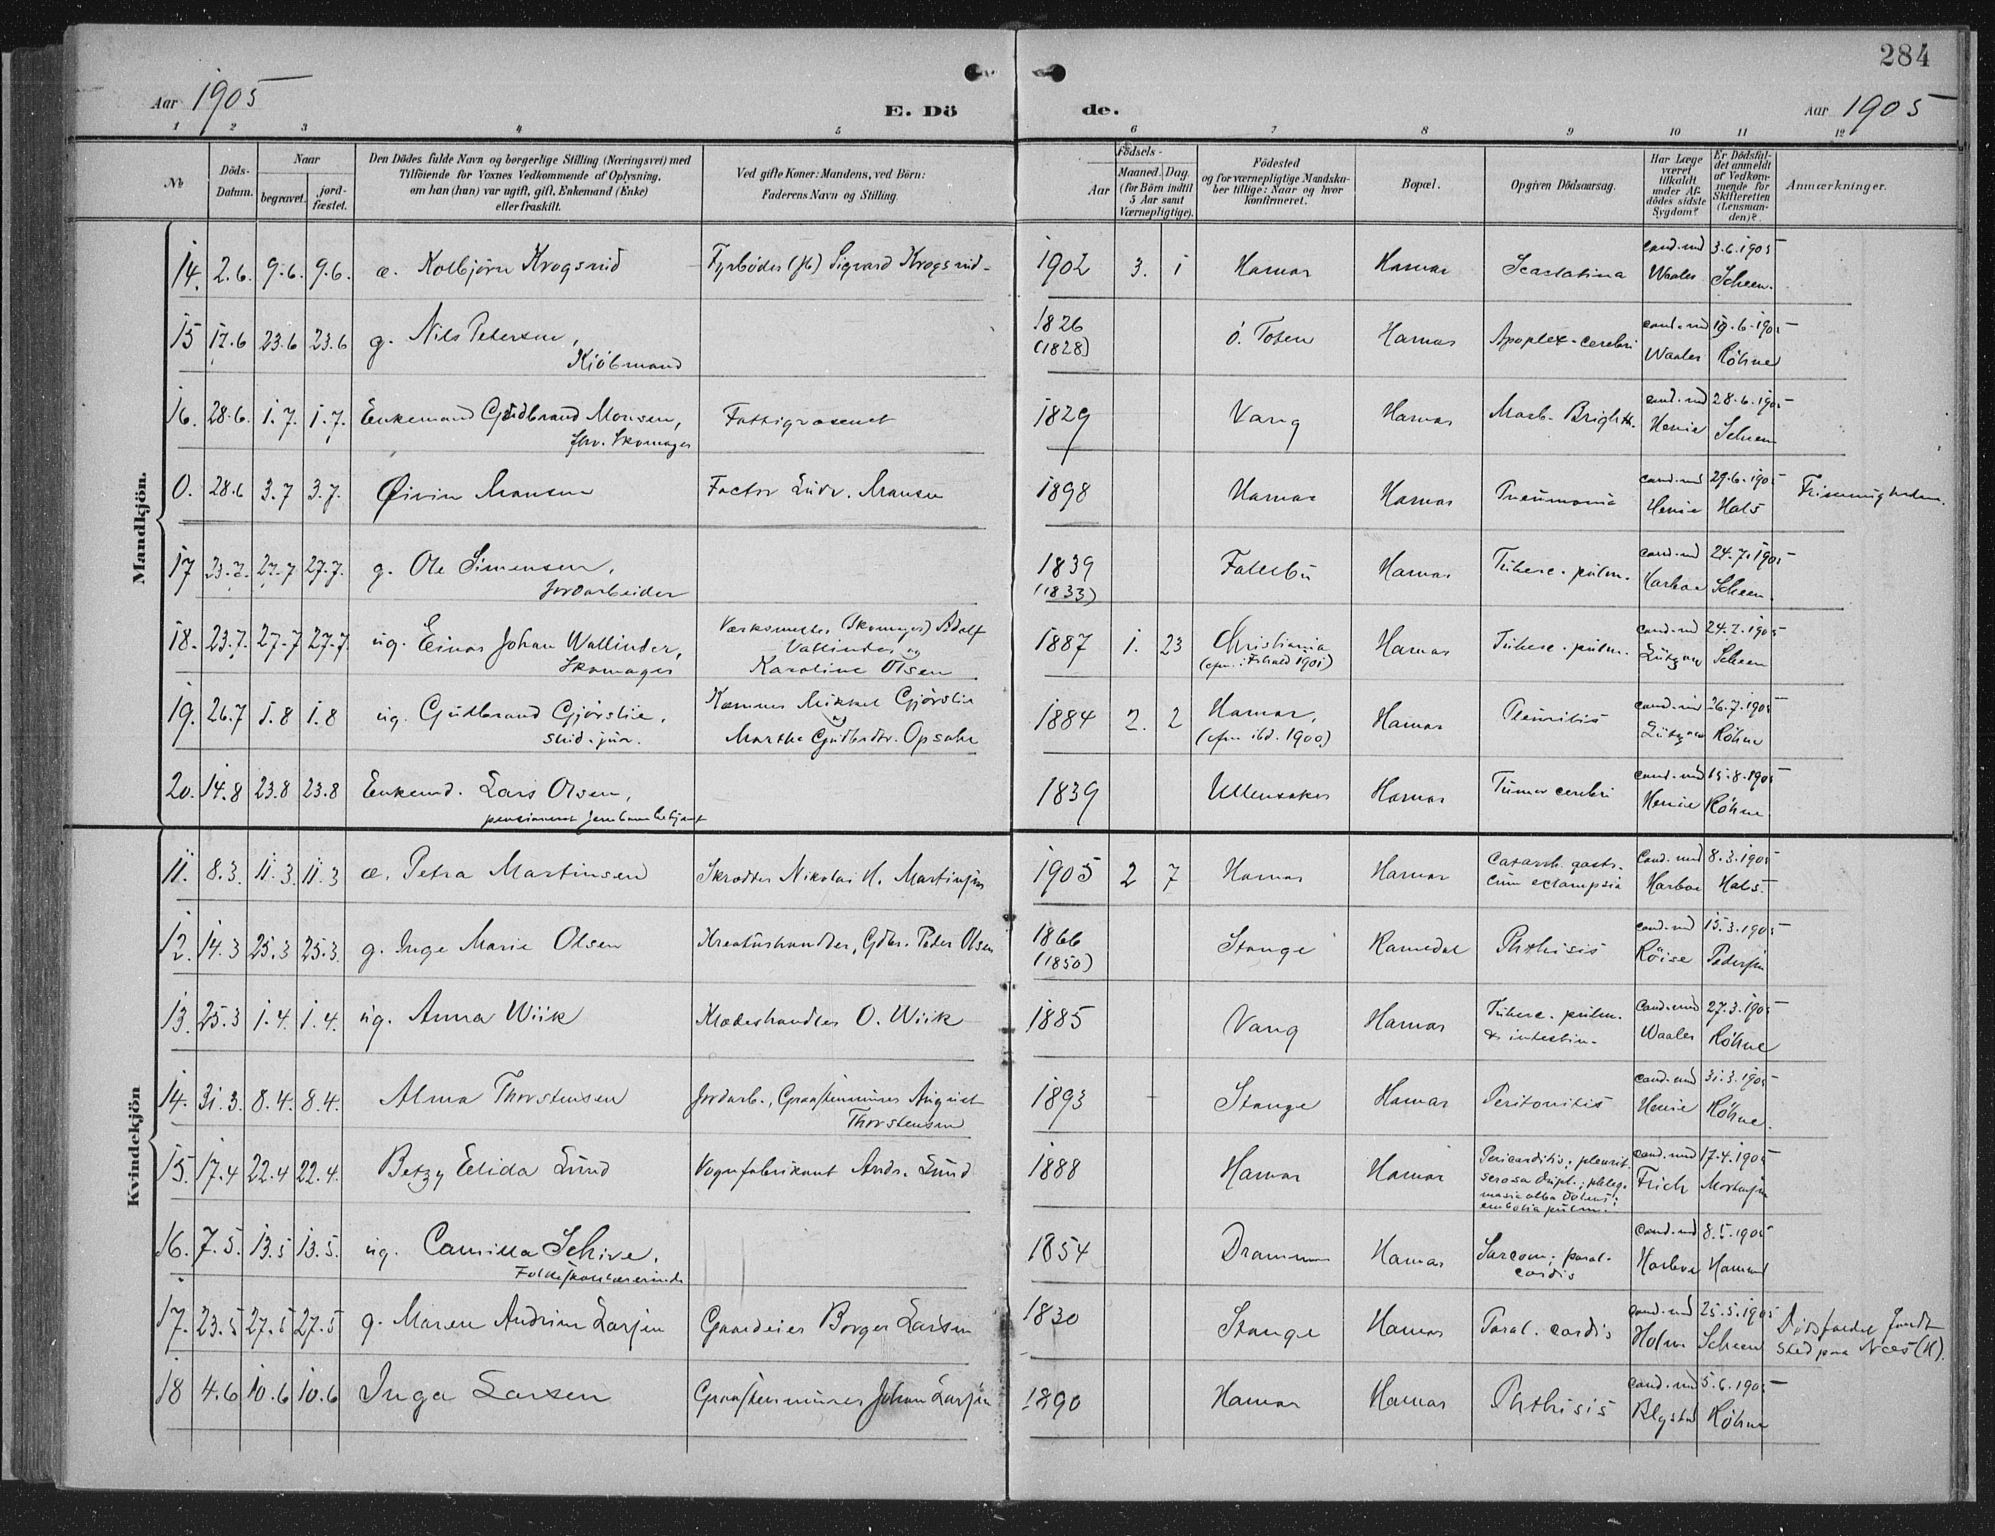 284
Aar 1905
E. Döde.
Aar 1905
1 2 3 4 5 6 7 8 9 10 11 12
No
Döds-Datum.
Naar
begravet.
jord-fæstet.
Den Dödes fulde Navn og borgerlige Stilling (Næringsvei) med
Tilföiende for Voxnes Vedkommende af Oplysning,
om han (hun) var ugift, gift, Enkemand (Enke)
eller fraskilt.
Ved gifte Koner: Mandens, ved Börn:
Faderens Navn og Stilling.
Födsels-
Aar
Maaned. Dag.
(for Börn indtil
5 Aar samt
Værnepligtige).
Födested
og for værnepligtige Mandska-
ber tillige: Naar og hvor
konfirmeret.
Bopæl.
Opgiven Dödsaarsag.
Har Læge
været
tilkaldt
under Af-
dödes sidste
Sygdom?
Er Dödsfal-
det anmeldt
af Vedkom-
mende for
Skifteretten
(Lensman-
den)?
Anmærkninger.
Mandkjön.
14. 2.6. 9.6. 9.6. æ. Kolbjörn Krogsrud Fyrböder (Jb) Sigvard Krogsrud 1902 3. 1 Hamar Hamar Scarlatina cand. med Waaler 3.6.1905 Scheen.
15 17.6 23.6 23.6 g. Nils Petersen, Kjöbmand 1826 (1828) Ö. Toten Hamar Apoplex. cerebri cand. med Waaler 19.6.1905 Röhne
16. 28.6. 1.7. 1.7. Enkemand Gudbrand Monsen, fhv. Skomager Fattigvæsenet 1829 Vang Hamar Morb. Brightii. cand. med Henie 28.6.1905 Scheen
0. 28.6 3.7 3.7. Øivin Hansen Factor Ludv. Hansen 1898 Hamar Hamar Pneumonia cand. med Henie 29.6.1905 Hals Frimenigheden.
17 23.7. 27.7 27.7. g. Ole Simensen, Jordarbeider 1839 (1833) Hamar Tuberc. pulm. cand. med Harboe 24.7.1905 Scheen.
18. 23.7. 27.7 27.7 ug. Einar Johan Wallinder, Skomager Værksmester (Skomager) Adolf Vallinder og Karoline Olsen 1887 1. 23 Christiania Hamar Tuberc. pulm. cand. med Lützow 24.7.1905 Scheen
19. 26.7 1.8 1.8 ug. Gudbrand Gjörslie, stud. jur. Kæmner Mikkel Gjörslie og Marthe Gudbrdtr. Opsahl 1884 2. 2 Hamar, (cfm. ibd. 1900) Hamar Pleuritis cand. med Lützow 26.7.1905 Röhne
20. 14.8 23.8 23.8 Enkemd. Lars Olsen, pensioneret jernbanebetjent 1839 Ullensaker Hamar Tumor cerebri cand. med Henie 15.8.1905 Röhne
Kvindekjön
11. 8.3. 11.3 11.3 æ. Petra Martinsen Skrædder Nikolai H. Martinsen 1905 2 7 Hamar Hamar Catarrh. gastr. cum eclampsia Cand. med Harboe 8.3.1905 Hals.
12. 14.3 25.3 25.3. g. Inge Marie Olsen Kreaturhandler, Gdbr. Peder Olsen 1866 (1850) Stange Phthisis cand. med Röise 15.3.1905 Pedersen
13. 25.3 1.4. 1.4. ug. Anna Wiik Klædeshandler O. Wiik 1885 Vang Hamar Tuberc. pulm. & intestin. cand. med Waaler 27.3.1905 Röhne
14. 31.3. 8.4. 8.4. Alma Thorstensen Jordarb., Graastensmurer August Thorstensen 1893 Stange Hamar Peritonitis cand. med Henie 31.3.1905 Röhne.
15. 17.4 22.4 22.4. Betzy Elida Lund Vognfabrikant Andr. Lund 1888 Hamar Hamar Pericarditis; pleurit. serosa dupl.; phlegmasia alba dolens; embolia pulm. cand. med Frich 17.4.1905 Mortensen
16. 7.5. 13.5 13.5. ug. Camilla Schive, Folkeskolelærerinde 1854 Drammen Hamar Sarcom; paral. cordis cand. med Harboe 8.5.1905
17. 23.5 27.5 27.5 g. Maren Andrine Larsen Gaardeier Borger Larsen 1830 Stange Hamar Paral. cordis cand. med Holm 25.5.1905 Scheen Dödsfaldet fandt sted paa Næs (H).
18 4.6 10.6 10.6 Inga Larsen Graastensmurer Johan Larsen 1890 Hamar Hamar Phthisis cand. med Blystad 5.6.1905 Röhne